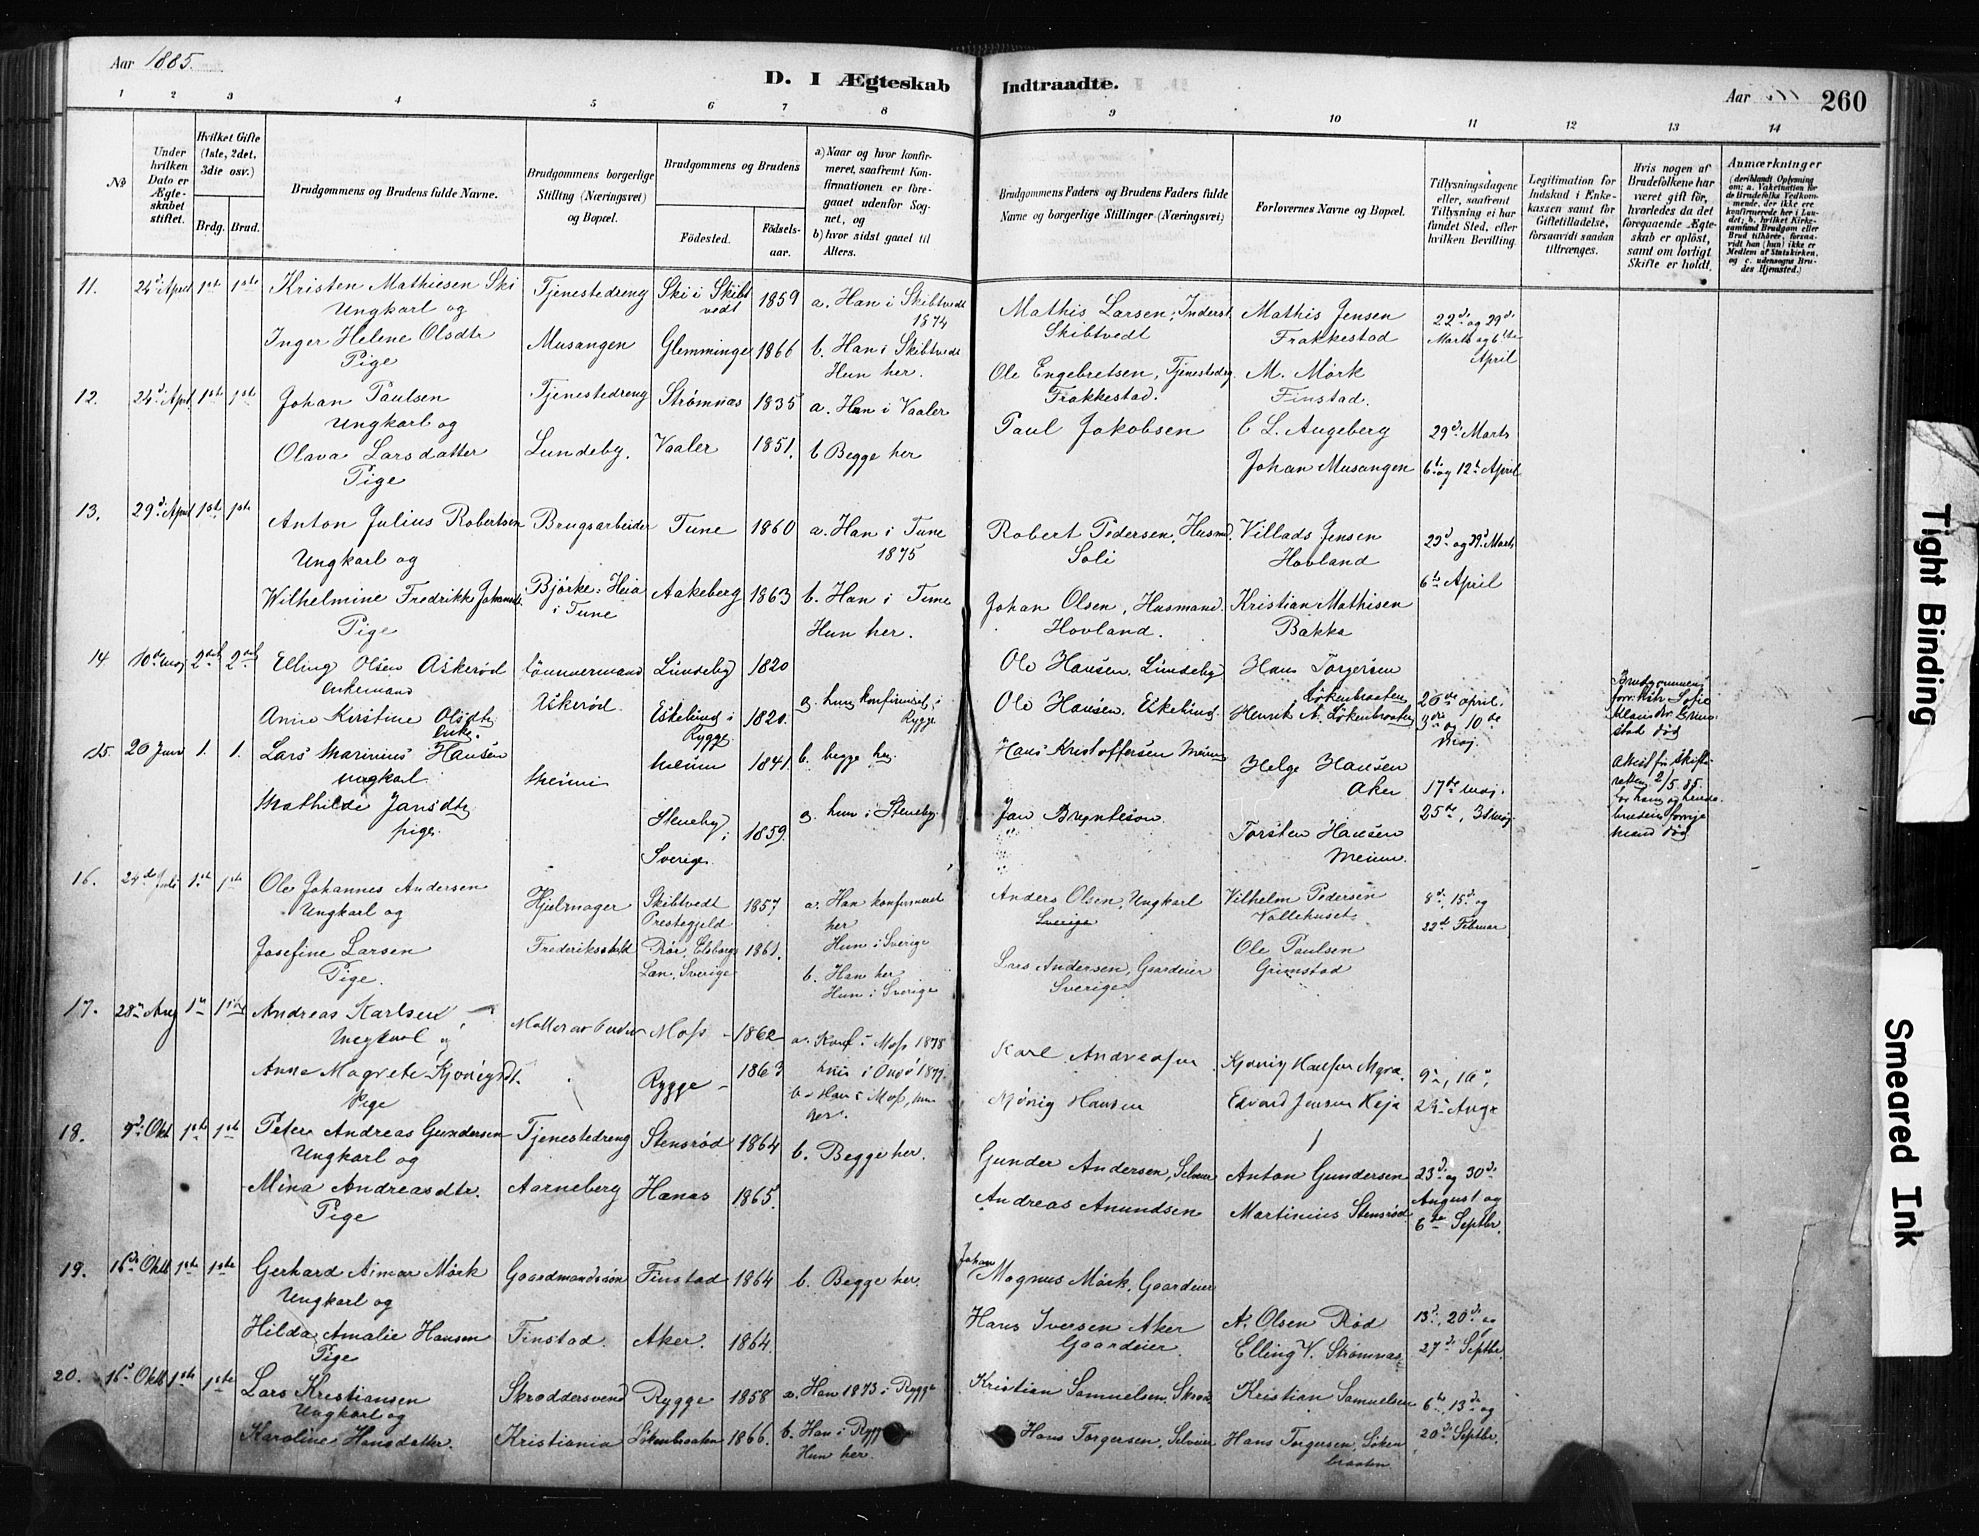 Aar 1885.
D. I Ægteskab Indtraadte.
Aar 260
1 2 3 4 5 6 7 8 9 10 11 12 13 14
No
Under hvilken Dato er Ægteskabet stiftet.
Hvilket Gifte (1ste, 2det, 3die osv.)
Brdg. Brud.
Brudgommens og Brudens fulde Navne.
Brudgommens borgerlige Stilling (Næringsvei) og Bopæl.
Brudgommens og Brudens
Fødested. Fødselsaar.
a) Naar og hvor konfirmeret, saafremt Konfirmationen er foregaaet udenfor Sognet, og
b) hvor sidst gaaet til Alters.
Brudgommens Faders og Brudens Faders fulde Navne og borgerlige Stillinger (Næringsvei)
Forlovernes Navne og Bopæl.
Tillysningsdagene eller, saafremt Tillysning ei har fundet Sted, efter hvilken Bevilling.
Legitimation for Indskud i Enkekassen samt for Giftetilladelse, forsaavidt saadan tiltrænges.
Hvis nogen af Brudefolkene har været gift før, hvorledes da det foregaaende Ægteskab er opløst, samt om lovligt Skifte er holdt.
Anmærkninger
(deriblandt Oplysning om: a. Vakcination for de Brudefolks Vedkommende, der ikke ere konfirmerede her i Landet; b. hvilket Kirkesamfund Brudgom eller Brud tilhører, forsaavidt han (hun) ikke er Medlem af Statskirken, og c. udensogns Brudes Hjemsted.)
11. 24d April 1ste 1ste Kristen Mathiesen Ski Tjenestedreng Ski i Skibtvedt 1859 a. Han i Skibtvedt 1874
Ungkarl og
Inger Helene Olsdtr Musangen Glemminge 1866 b. Han i Skibtvedt
Pige Hun her.
Mathis Larsen, Inderst Mathis Jensen 22d og 29d
Skibtvedt Frakkestad Marts og 6te April
Ole Engebretsen, Tjenestedrg M. Mörk
Frakkestad. Finstad.
12. 24d April 1ste 1ste Johan Paulsen Tjenestedreng Strømnæs 1835 a. Han i Vaaler
Ungkarl og
Olava Larsdatter Lundeby. Vaaler 1851. b Begge her
Pige
Paul Jakobsen C L. Augeberg 29d Marts
Johan Musangen 6te og 12te April
13. 29d April 1ste 1ste Anton Julius Robertsen Brugsarbeider Tune 1860 a. Han i Tune 1875
Ungkarl og
Wilhelmine Fredrikke Johansdt. Bjørke-Heia i Tune Aakeberg 1863 b. Han i Tune
Pige Hun her.
Robert Pedersen, Husmd Villads Jensen 23d og 29d Marts
Soli Hovland 6te April
Johan Olsen, Husmand Kristian Mathisen
Hovland. Bakke
14 10de Maj 2det 2det Elling Olsen Askerød Tømmermand Lundeby 1820
Enkemand Askerød.
Anne Kirstine Olsdtr Eskelund i Rygge 1820. a. hun konfirmeret i Rygge
Enke.
Ole Hansen, Lundeby Hans Torgersen Løkenbraaten
Ole Hansen, Eskelund Henrik A. Løkenbraaten 26de April.
3die og 10de Maj
Brudgommens forr. Kone Sofie Grimstad død
Attest fra Skifteretten 2/5 85. for ham og hende brudens forrige Mand død
15. 20 Juni 1. 1. Lars Marinius Hansen Meum Meum 1841. b. begge her.
ungkarl
Mathilde Jansdtr Steneby, Sverige 1859. a. hun i Steneby.
pige.
Hans Kristoffersen Meum Helge Hansen Aker 17de Maj.
Jan Bryntesen Torsten Hansen Meum. 25de, 31 Maj
16. 24de Juli 1st 1ste Ole Johannes Andersen Hjulmager Skibtvedt Prestegjeld 1857 a. Han konfirmeret her
Ungkarl og Hun i Sverige
Josefine Larsen Frederikshald Rör, Elsborgs Län, Sverige 1861. b. Han her
Pige. Hun i Sverige
Anders Olsen, Ungkarl Vilhelm Pedersen 8d, 15d og
Sverige Vollehuset 22d Februar
Lars Andersen, Gaardeier Ole Paulsen
Sverige Grimstad
17. 28de Aug 1ste 1ste Andreas Karlsen Moss 1862 a. Konf i Moss 1878
Ungkarl og hun i Onsø 1877
Anna Magrete Kjønigsdt. Rygge 1863 b. Han i Moss, hun her.
Pige
Karl Andreasen
Kjønig Hansen Edvard Jensen Heja 23d Aug
18. 9d Okt 1ste 1ste Peter Andreas Gundersen Tjenestedreng Stensrød 1864 b. Begge her.
Ungkarl og
Mina Andreasdtr. Aarneberg Hanas 1865.
Pige
Gunder Andersen, Selveier Anton Gundersen 23d og 30d
Andreas Amundsen Martinius Stensrød August og 6te Septbr.
19. 16de Oktb 1ste 1ste Gerhard Aimar Mörk Gaardmandssön Finstad 1864 b. Begge her.
Ungkarl og
Hilda Amalie Hansen Finstad. Aker. 1864.
Pige
Johan Magnus Mörk, Gaardeier
Hans Iversen Aker A. Olsen Rød 13d, 20d og
Gaardeier. Elling V. Strømnæs 27d Septbr.
20. 16d Oktb 1ste 1ste Lars Kristiansen Skræddersvend Rygge 1858 a. Han 1873 i Rygge
Ungkarl og
Karoline Hansdatter. Kristiania Løkenbraaten 1866. b. Han i Rygge
Hun her.
Kristian Samuelsen, Skræd Kristian Samuelsen 6te, 13d og
Hans Torgersen, Selveier Hans Torgersen, Løkenbraaten 20d Septbr.
Tight Binding
Smeared Ink